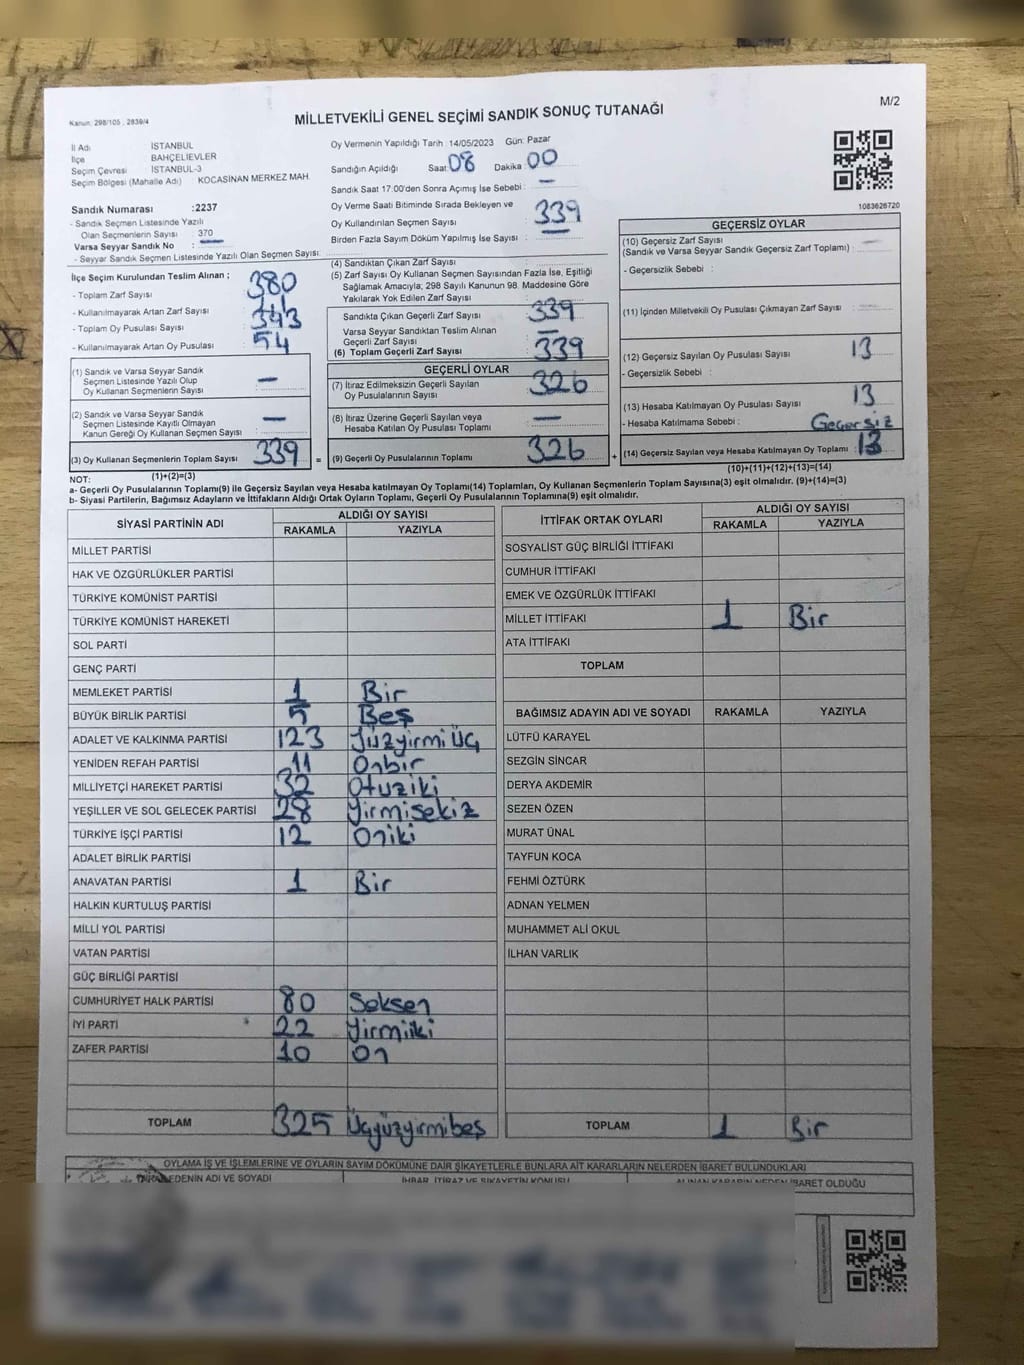 Kanun: 298/105 , 2839/4
MİLLETVEKİLİ GENEL SEÇİMİ SANDIK SONUÇ TUTANAĞI
M/2
İl Adı İSTANBUL
İlçe BAHÇELİEVLER
Seçim Çevresi İSTANBUL-3
Seçim Bölgesi (Mahalle Adı) : KOCASİNAN MERKEZ MAH.
Sandık Numarası :2237
- Sandık Seçmen Listesinde Yazılı
Olan Seçmenlerin Sayısı : 370
Varsa Seyyar Sandık No : —
- Seyyar Sandık Seçmen Listesinde Yazılı Olan Seçmen Sayısı:
Oy Vermenin Yapıldığı Tarih 14/05/2023 Gün: Pazar
Sandığın Açıldığı Saat: 08 Dakika: 00
Sandık Saat 17:00'den Sonra Açımış İse Sebebi : —
Oy Verme Saati Bitiminde Sırada Bekleyen ve
Oy Kullandırılan Seçmen Sayısı : 339
Birden Fazla Sayım Döküm Yapılmış İse Sayısı : —
1083626720
İlçe Seçim Kurulundan Teslim Alınan ;
- Toplam Zarf Sayısı : 380
- Kullanılmayarak Artan Zarf Sayısı : 41
- Toplam Oy Pusulası Sayısı : 393
- Kullanılmayarak Artan Oy Pusulası : 54
(1) Sandık ve Varsa Seyyar Sandık
Seçmen Listesinde Yazılı Olup
Oy Kullanan Seçmenlerin Sayısı : —
(2) Sandık ve Varsa Seyyar Sandık
Seçmen Listesinde Kayıtlı Olmayan
Kanun Gereği Oy Kullanan Seçmen Sayısı : —
(3) Oy Kullanan Seçmenlerin Toplam Sayısı : 339 =
(1)+(2)=(3)
(4) Sandıktan Çıkan Zarf Sayısı :
(5) Zarf Sayısı Oy Kullanan Seçmen Sayısından Fazla İse, Eşitliği
Sağlamak Amacıyla; 298 Sayılı Kanunun 98. Maddesine Göre
Yakılarak Yok Edilen Zarf Sayısı :
Sandıkta Çıkan Geçerli Zarf Sayısı : 339
Varsa Seyyar Sandıktan Teslim Alınan
Geçerli Zarf Sayısı : —
(6) Toplam Geçerli Zarf Sayısı : 339
GEÇERLİ OYLAR
(7) İtiraz Edilmeksizin Geçerli Sayılan
Oy Pusulasının Sayısı : 326
(8) İtiraz Üzerine Geçerli Sayılan veya
Hesaba Katılan Oy Pusulası Toplamı : —
(9) Geçerli Oy Pusulalarının Toplamı : 326 +
GEÇERSİZ OYLAR
(10) Geçersiz Zarf Sayısı
(Sandık ve Varsa Seyyar Sandık Geçersiz Zarf Toplamı) : —
- Geçersizlik Sebebi :
(11) İçinden Milletvekili Oy Pusulası Çıkmayan Zarf Sayısı :
(12) Geçersiz Sayılan Oy Pusulası Sayısı : 13
- Geçersizlik Sebebi :
(13) Hesaba Katılmayan Oy Pusulası Sayısı : 13
- Hesaba Katılmama Sebebi : Geçersiz
(14) Geçersiz Sayılan veya Hesaba Katılmayan Oy Toplamı : 13
(10)+(11)+(12)+(13)=(14)
NOT:
a- Geçerli Oy Pusulalarının Toplamı(9) ile Geçersiz Sayılan veya Hesaba Katılmayan Oy Toplamı(14) Toplamları, Oy Kullanan Seçmenlerin Toplam Sayısına(3) eşit olmalıdır. (9)+(14)=(3)
b- Siyasi Partilerin, Bağımsız Adayların ve İttifakların Aldığı Ortak Oyların Toplamı, Geçerli Oy Pusulalarının Toplamına(9) eşit olmalıdır.
SİYASİ PARTİNİN ADI ALDIĞI OY SAYISI
RAKAMLA YAZIYLA
MİLLET PARTİSİ
HAK VE ÖZGÜRLÜKLER PARTİSİ
TÜRKİYE KOMÜNİST PARTİSİ
TÜRKİYE KOMÜNİST HAREKETİ
SOL PARTİ
GENÇ PARTİ
MEMLEKET PARTİSİ 1 Bir
BÜYÜK BİRLİK PARTİSİ 5 Beş
ADALET VE KALKINMA PARTİSİ 123 Yüzyirmi Üç
YENİDEN REFAH PARTİSİ 11 Onbir
MİLLİYETÇİ HAREKET PARTİSİ 32 Otuziki
YEŞİLLER VE SOL GELECEK PARTİSİ 28 Yirmisekiz
TÜRKİYE İŞÇİ PARTİSİ 12 Oniki
ADALET BİRLİK PARTİSİ
ANAVATAN PARTİSİ 1 Bir
HALKIN KURTULUŞ PARTİSİ
MİLLİ YOL PARTİSİ
VATAN PARTİSİ
GÜÇ BİRLİĞİ PARTİSİ
CUMHURİYET HALK PARTİSİ 80 Seksen
İYİ PARTİ 22 Yirmiiki
ZAFER PARTİSİ 10 On
TOPLAM 325 Üçyüzyirmibeş
İTTİFAK ORTAK OYLARI ALDIĞI OY SAYISI
RAKAMLA YAZIYLA
SOSYALİST GÜÇ BİRLİĞİ İTTİFAKI
CUMHUR İTTİFAKI
EMEK VE ÖZGÜRLÜK İTTİFAKI
MİLLET İTTİFAKI 1 Bir
ATA İTTİFAKI
TOPLAM
BAĞIMSIZ ADAYIN ADI VE SOYADI RAKAMLA YAZIYLA
LÜTFÜ KARAYEL
SEZGİN SİNCAR
DERYA AKDEMİR
SEZEN ÖZEN
MURAT ÜNAL
TAYFUN KOCA
FEHMİ ÖZTÜRK
ADNAN YELMEN
MUHAMMET ALİ OKUL
İLHAN VARLIK
TOPLAM 1 Bir
OYLAMA İŞ VE İŞLEMLERİNE VE OYLARIN SAYIM DÖKÜMÜNE DAİR ŞİKAYETLERLE BUNLARA AİT KARARLARIN NELERDEN İBARET BULUNDUKLARI
EDENİN ADI VE SOYADI İHBAR, İTİRAZ VE ŞİKAYETİN KONUSU ALINAN KARARIN NEDEN İBARET OLDUĞU